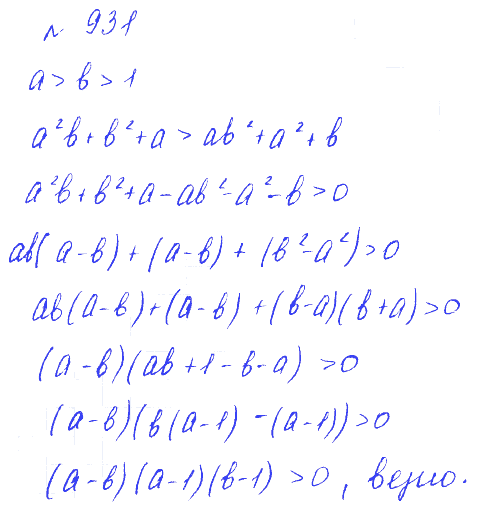 № 931
a > b > 1
a²b + b² + a > ab² + a² + b
a²b + b² + a - ab² - a² - b > 0
ab(a - b) + (a - b) + (b² - a²) > 0
ab(a - b) + (a - b) + (b - a)(b + a) > 0
(a - b)(ab + 1 - b - a) > 0
(a - b)(b(a - 1) - (a - 1)) > 0
(a - b)(a - 1)(b - 1) > 0, верно.